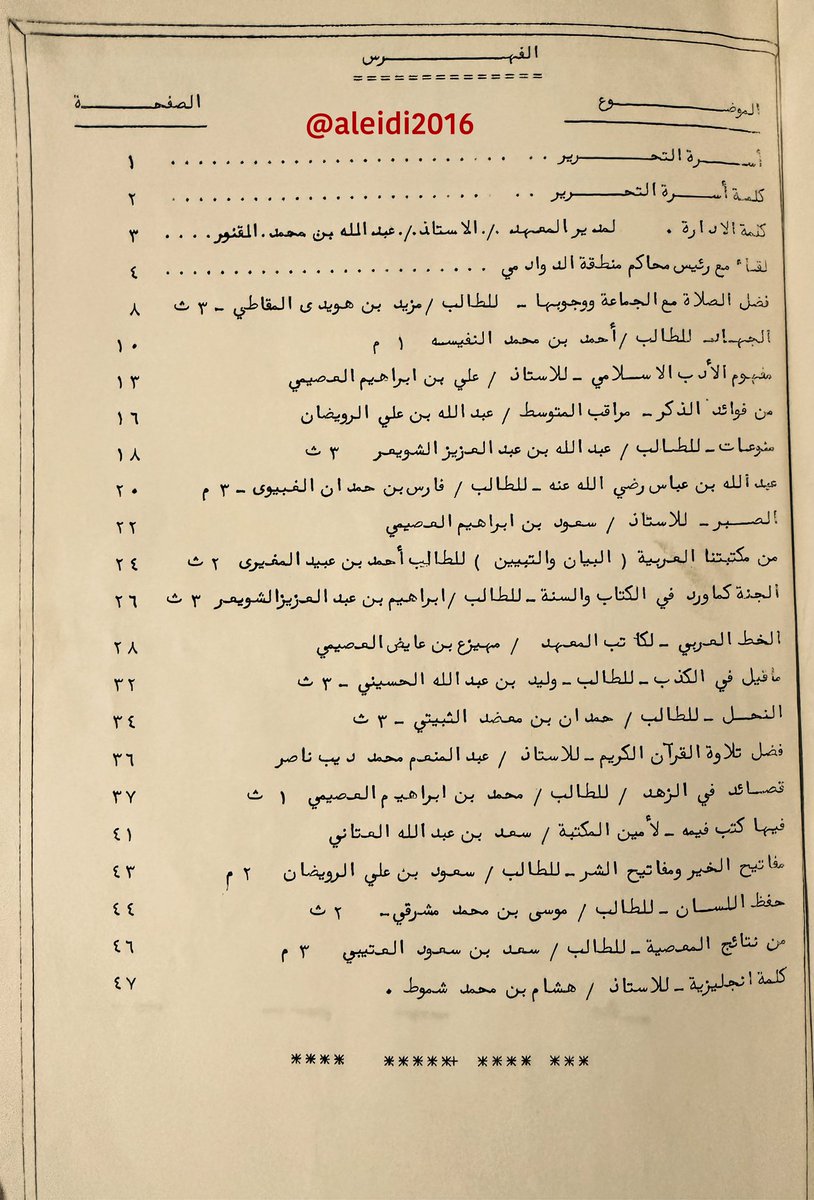 الفهرس
==============
الموضوع الصفحة
@aleidi2016
أسرة التحرير .............................. ١
كلمة أسرة التحرير .............................. ٢
كلمة الادارة . لمدير المعهد ./. الاستاذ./. عبدالله بن محمد. المقنور.... ٣
لقاء مع رئيس محاكم منطقة الدوادمي ........................ ٤
فضل الصلاة مع الجماعة ووجوبها - للطالب / مزيد بن هويدى المقاطي - ٣ ث ٨
الجهاد للطالب / أحمد بن محمد النفيسه ١ م ١٠
مفهوم الأدب الاسلامي - للاستاذ / علي بن ابراهيم العصيمي ١٣
من فوائد الذكر - مراقب المتوسط / عبدالله بن علي الرويضان ١٦
منوعات - للطالب / عبدالله بن عبدالعزيز الشويعر ٣ ث ١٨
عبدالله بن عباس رضي الله عنه - للطالب / فارس بن حمدان الغبيوى - ٣ م ٢٠
الصبر - للاستاذ / سعود بن ابراهيم العصيمي ٢٢
من مكتبتنا العربية ( البيان والتبيين ) للطالب أحمد بن عبيد المغيرى ٢ ث ٢٤
الجنة كماورد في الكتاب والسنة - للطالب / ابراهيم بن عبدالعزيز الشويعر ٣ ث ٢٦
الخط العربي - لكاتب المعهد / مهيزع بن عايض العصيمي ٢٨
ماقيل في الكذب - للطالب - وليد بن عبدالله الحسيني - ٣ ث ٣٢
النحل - للطالب / حمدان بن معضد الثبيتي - ٣ ث ٣٤
فضل تلاوة القرآن الكريم - للاستاذ / عبدالمنعم محمد ديب ناصر ٣٦
قصائد في الزهد / للطالب / محمد بن ابراهيم العصيمي ١ ث ٣٧
فيها كتب قيمه - لأمين المكتبة / سعد بن عبدالله العتاني ٤١
مفاتيح الخير ومفاتيح الشر - للطالب / سعود بن علي الرويضان ٢ م ٤٣
حفظ اللسان - للطالب / موسى بن محمد مشرقي - ٢ ث ٤٤
من نتائج المعصية - للطالب / سعد بن سعود العتيبي ٣ م ٤٦
كلمة انجليزية - للاستاذ / هشام بن محمد شموط . ٤٧
*** **** *****+ ****